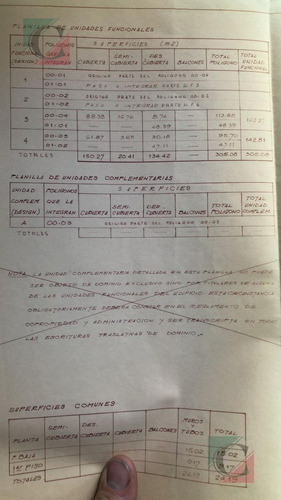 PLANILLA DE UNIDADES FUNCIONALES
UNIDAD FUNCIONAL (DESIGN) POLIGONOS QUE LA INTEGRAN SUPERFICIES (M2) TOTAL POLIGONO TOTAL UNIDAD FUNCIONAL
CUBIERTA SEMI-CUBIERTA DES CUBIERTA BALCONES
1 00-01 ORIGINO PARTE DEL POLIGONO 00-04
01-01 PASO A INTEGRAR
2 00-02 ORIGINO PARTE DEL POLIGONO
01-02 PASO A INTEGRAR
3 00-04 88.38 16.76 8.74 — 113.88
01-01 — — 48.39 — 48.39
4 00-05 61.87 3.65 30.18 — 95.70 142.81
01-02 — — 47.11 — 47.11
TOTALES 150.27 20.41 134.42 305.08 305.08
PLANILLA DE UNIDADES COMPLEMENTARIAS
UNIDAD COMPLEM (DESIGN) POLIGONOS QUE LA INTEGRAN SUPERFICIES TOTAL POLIGONO TOTAL UNIDAD COMPLEM.
CUBIERTA SEMI-CUBIERTA DES. CUBIERTA BALCONES
A 00-03 ORIGINO PARTE DEL POLIGONO 00-05
TOTALES
NOTA: LA UNIDAD COMPLEMENTARIA DETALLADA EN ESTA PLANILLA NO PUEDE
SER OBJETO DE DOMINIO EXCLUSIVO SINO POR TITULARES DE ALGUNA
DE LAS UNIDADES FUNCIONALES DEL EDIFICIO ESTA CIRCUNSTANCIA
OBLIGATORIAMENTE DEBERA CONSTAR EN EL REGLAMENTO DE
COPROPIEDAD Y ADMINISTRACION Y SER TRANSCRIPTA EN TODAS
LAS ESCRITURAS TRASLATIVAS DE DOMINIO.
SUPERFICIES COMUNES
PLANTA SEMI-CUBIERTA DES. CUBIERTA CUBIERTA BALCONES MUROS Y TABQS TOTAL
P. BAJA 15.02 15.02
1er PISO 9.17 9.17
TOTALES 24.19 24.19